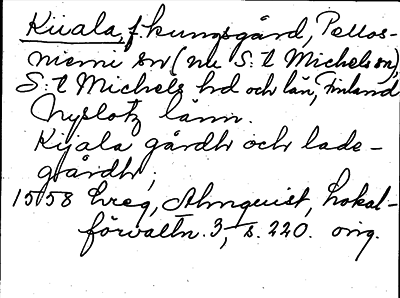 Kiiala, f. kungsgård, Pellos-
niemi sn (nu S:t Michels sn),
S:t Michels hd och län, Finland
Nyslotz länn.
Kijala gårdh och lade-
gårdh;
1558 hreg, Almquist, Lokal-
förvaltn. 3, s. 220. orig.